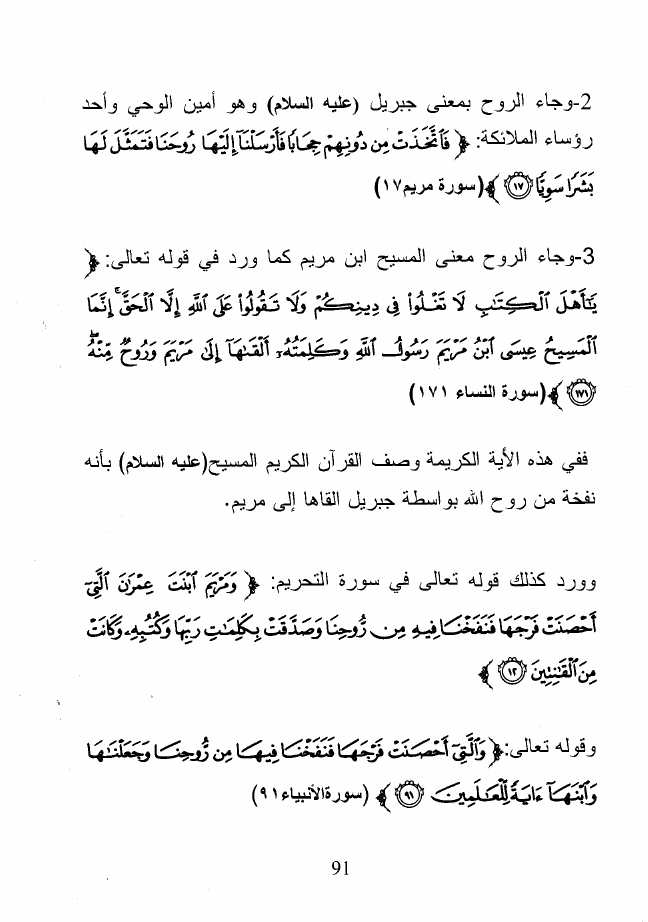 2-وجاء الروح بمعنى جبريل (عليه السلام) وهو أمين الوحي وأحد
رؤساء الملائكة: ﴿ فَٱتَّخَذَتْ مِن دُونِهِمْ حِجَابًا فَأَرْسَلْنَآ إِلَيْهَا رُوحَنَا فَتَمَثَّلَ لَهَا
بَشَرًا سَوِيًّا ﴿١٧﴾ ﴾(سورة مريم١٧)
3-وجاء الروح معنى المسيح ابن مريم كما ورد في قوله تعالى: ﴿
يَٰٓأَهْلَ ٱلْكِتَٰبِ لَا تَغْلُوا۟ فِى دِينِكُمْ وَلَا تَقُولُوا۟ عَلَى ٱللَّهِ إِلَّا ٱلْحَقَّ ۚ إِنَّمَا
ٱلْمَسِيحُ عِيسَى ٱبْنُ مَرْيَمَ رَسُولُ ٱللَّهِ وَكَلِمَتُهُۥٓ أَلْقَىٰهَآ إِلَىٰ مَرْيَمَ وَرُوحٌ مِّنْهُ ۖ
﴿١٧١﴾ ﴾(سورة النساء ١٧١)
ففي هذه الأية الكريمة وصف القرآن الكريم المسيح(عليه السلام) بأنه
نفخة من روح الله بواسطة جبريل القاها إلى مريم.
وورد كذلك قوله تعالى في سورة التحريم: ﴿ وَمَرْيَمَ ٱبْنَتَ عِمْرَٰنَ ٱلَّتِىٓ
أَحْصَنَتْ فَرْجَهَا فَنَفَخْنَا فِيهِ مِن رُّوحِنَا وَصَدَّقَتْ بِكَلِمَٰتِ رَبِّهَا وَكُتُبِهِۦ وَكَانَتْ
مِنَ ٱلْقَٰنِتِينَ ﴿١٢﴾ ﴾
وقوله تعالى:﴿ وَٱلَّتِىٓ أَحْصَنَتْ فَرْجَهَا فَنَفَخْنَا فِيهَا مِن رُّوحِنَا وَجَعَلْنَٰهَا
وَٱبْنَهَآ ءَايَةً لِّلْعَٰلَمِينَ ﴿٩١﴾ ﴾ (سورةالأنبياء٩١)
91